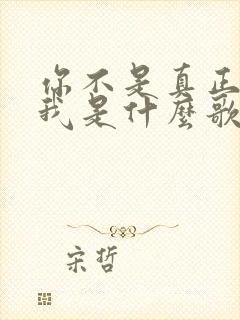 你不是真正
我是什麼歌
宋哲